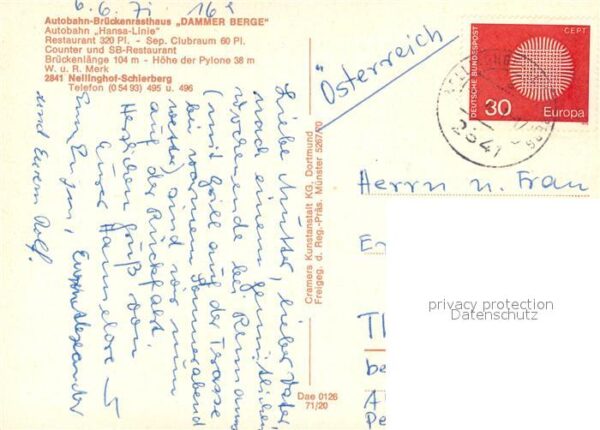 6.6.71. 16ʰ
Autobahn-Brückenrasthaus „DAMMER BERGE"
Autobahn „Hansa-Linie"
Restaurant 320 Pl. - Sep. Clubraum 60 Pl.
Counter und SB-Restaurant
Brückenlänge 104 m - Höhe der Pylone 38 m
W. u. R. Merk
2841 Nellinghof-Schierberg
Telefon (0 54 93) 495 u. 496
Liebe Mutter, lieber Vater,
nach einem gemütlichen
Wochenende bei
(mit Grill auf der Terasse
bei warmem Sommerabend
wetter) sind wir nun
auf der Rückfahrt.
Herzlichen Gruß von
Eurer Hannelore
Euer Alexander
und Euern Rolf.
Cramers Kunstanstalt KG. Dortmund
Freigeg. d. Reg.-Präs. Münster 5267/70
Dae 0126
71/20
Österreich
DEUTSCHE BUNDESPOST
CEPT
30 Europa
2841
Herrn u. Frau
privacy protection
Datenschutz